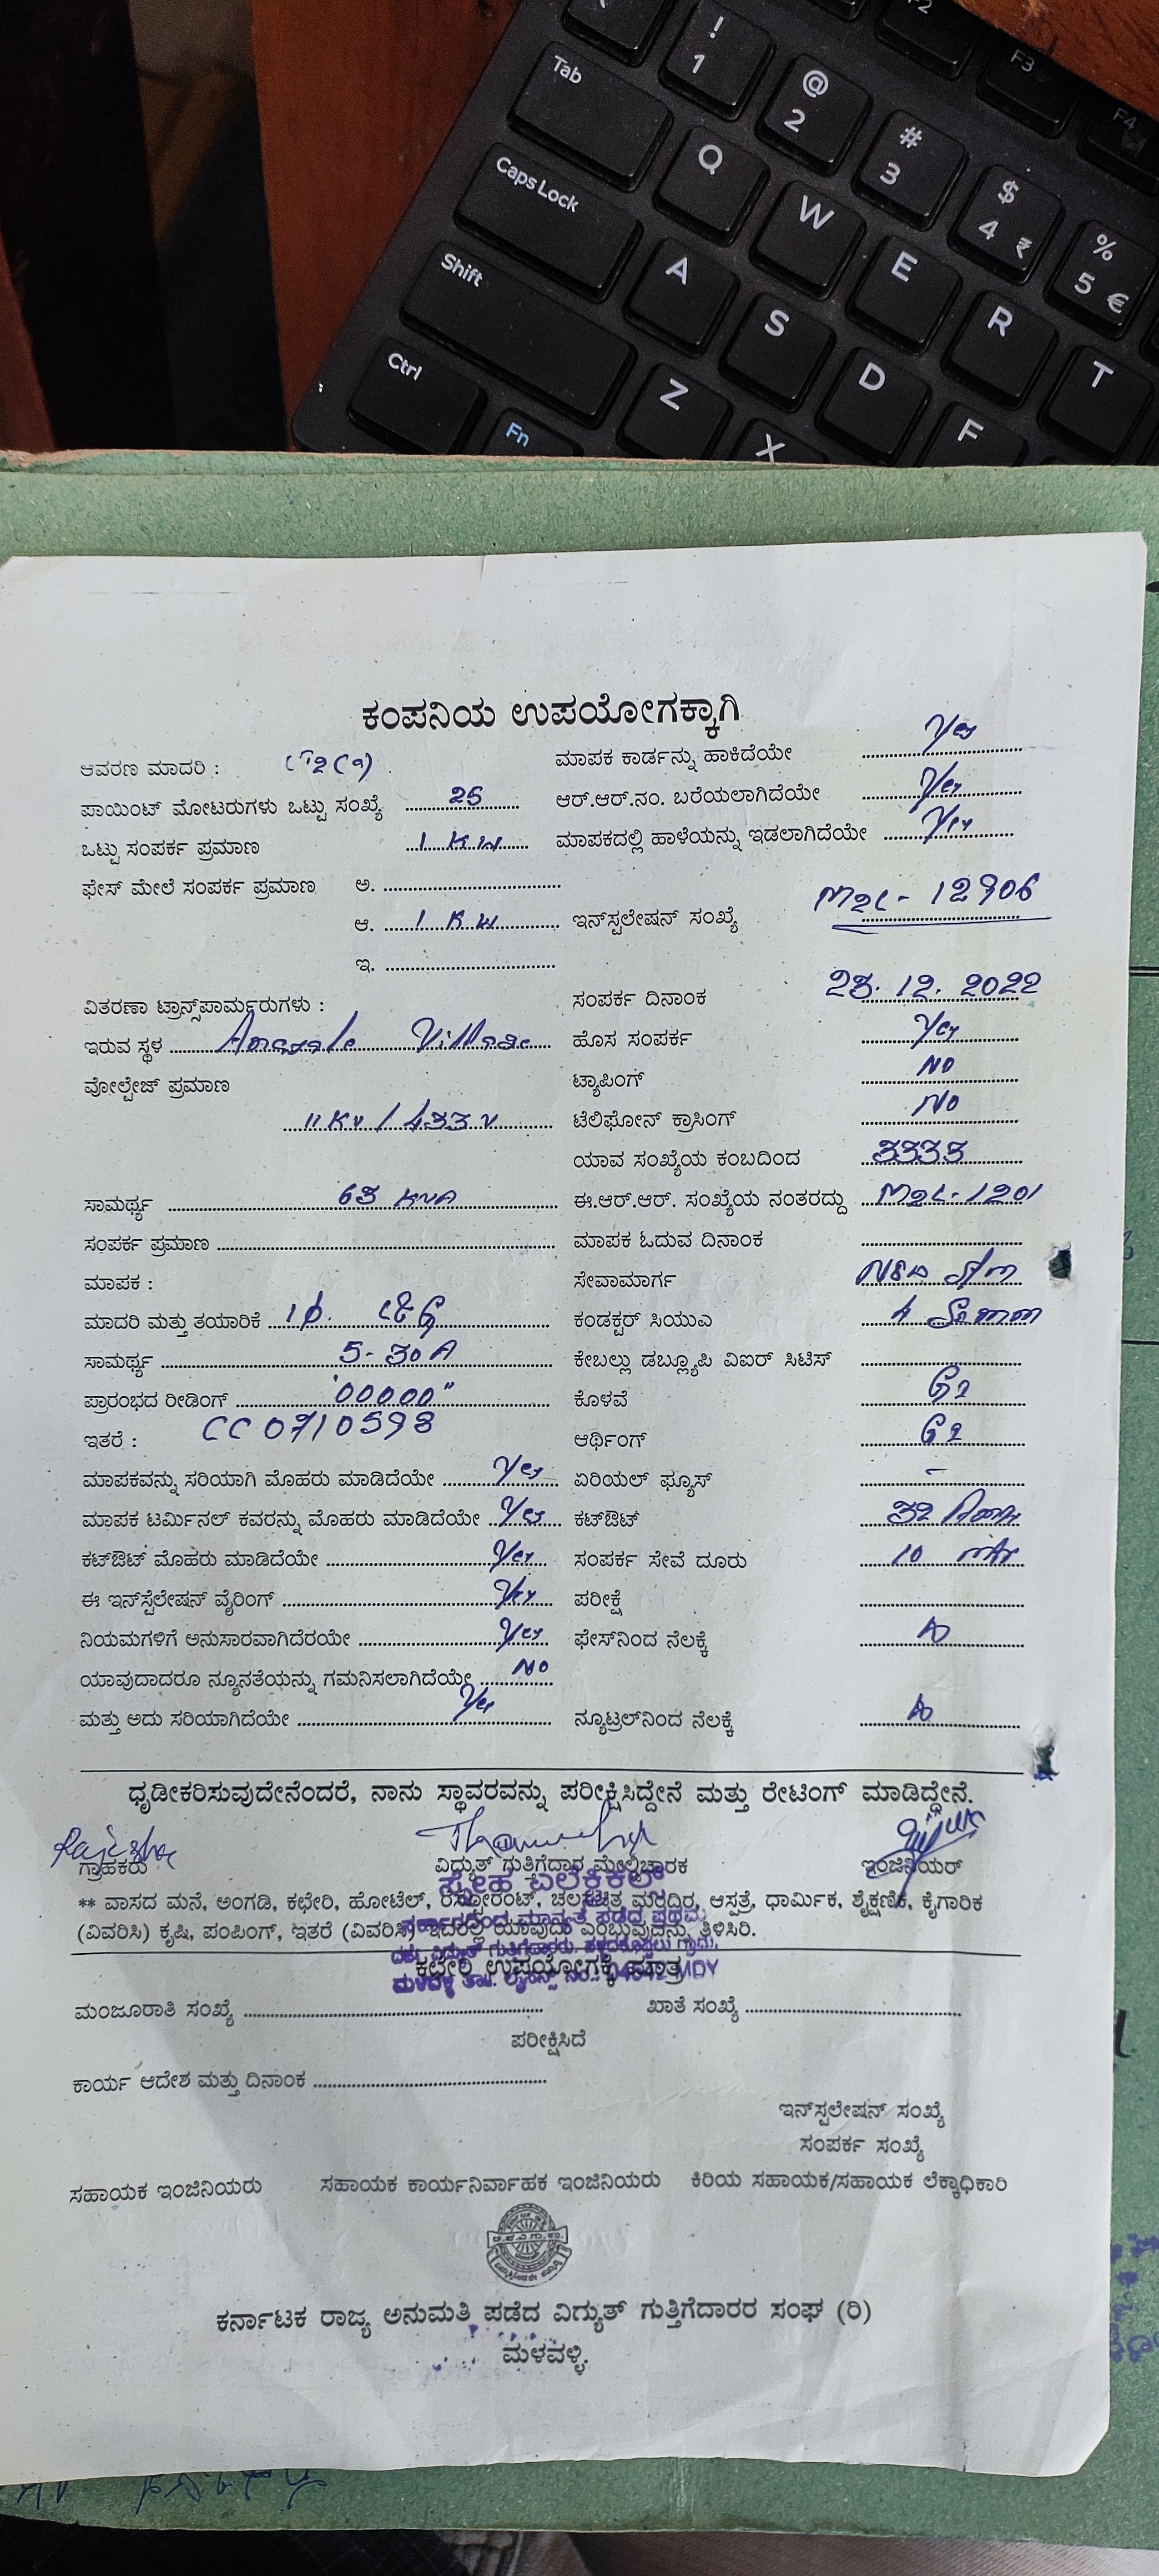 ! 1 @ 2 # 3 $ 4 ₹ % 5 € F2 F3 F4
Tab Q W E R T
Caps Lock A S D F
Shift Z X
Ctrl Fn
ಕಂಪನಿಯ ಉಪಯೋಗಕ್ಕಾಗಿ
ಆವರಣ ಮಾದರಿ :
ಮಾಪಕ ಕಾರ್ಡನ್ನು ಹಾಕಿದೆಯೇ Yes
ಪಾಯಿಂಟ್ ಮೋಟರುಗಳು ಒಟ್ಟು ಸಂಖ್ಯೆ 25
ಆರ್.ಆರ್.ನಂ. ಬರೆಯಲಾಗಿದೆಯೇ Yes
ಒಟ್ಟು ಸಂಪರ್ಕ ಪ್ರಮಾಣ 1 KW
ಮಾಪಕದಲ್ಲಿ ಹಾಳೆಯನ್ನು ಇಡಲಾಗಿದೆಯೇ Yes
ಫೇಸ್ ಮೇಲೆ ಸಂಪರ್ಕ ಪ್ರಮಾಣ ಅ.
ಆ. 1 KW ಇನ್‌ಸ್ಟಲೇಷನ್ ಸಂಖ್ಯೆ M2L- 12906
ಇ.
ವಿತರಣಾ ಟ್ರಾನ್ಸ್‌ಪಾರ್ಮರುಗಳು :
ಸಂಪರ್ಕ ದಿನಾಂಕ 23.12.2022
ಇರುವ ಸ್ಥಳ Village
ಹೊಸ ಸಂಪರ್ಕ Yes
ವೋಲ್ಟೇಜ್ ಪ್ರಮಾಣ
ಟ್ಯಾಪಿಂಗ್ NO
11 KV / 433 V ಟೆಲಿಫೋನ್ ಕ್ರಾಸಿಂಗ್ NO
ಯಾವ ಸಂಖ್ಯೆಯ ಕಂಬದಿಂದ 3333
ಸಾಮರ್ಥ್ಯ 63 KVA
ಈ.ಆರ್.ಆರ್. ಸಂಖ್ಯೆಯ ನಂತರದ್ದು M2L-1201
ಸಂಪರ್ಕ ಪ್ರಮಾಣ
ಮಾಪಕ ಓದುವ ದಿನಾಂಕ
ಮಾಪಕ :
ಸೇವಾಮಾರ್ಗ
ಮಾದರಿ ಮತ್ತು ತಯಾರಿಕೆ 1ф.
ಕಂಡಕ್ಟರ್ ಸಿಯುಎ 4
ಸಾಮರ್ಥ್ಯ 5-30A
ಕೇಬಲ್ಲು ಡಬ್ಲ್ಯೂಪಿ ವಿಐರ್ ಸಿಟಿಸ್
ಪ್ರಾರಂಭದ ರೀಡಿಂಗ್ "00000"
ಕೊಳವೆ GI
ಇತರೆ : CC 0710598
ಆರ್ಥಿಂಗ್ GI
ಮಾಪಕವನ್ನು ಸರಿಯಾಗಿ ಮೊಹರು ಮಾಡಿದೆಯೇ Yes
ಏರಿಯಲ್ ಫ್ಯೂಸ್ -
ಮಾಪಕ ಟರ್ಮಿನಲ್ ಕವರನ್ನು ಮೊಹರು ಮಾಡಿದೆಯೇ Yes
ಕಟ್‌ಔಟ್ 32
ಕಟ್‌ಔಟ್ ಮೊಹರು ಮಾಡಿದೆಯೇ Yes
ಸಂಪರ್ಕ ಸೇವೆ ದೂರು 10 mtr
ಈ ಇನ್‌ಸ್ಟೆಲೇಷನ್ ವೈರಿಂಗ್ Yes
ಪರೀಕ್ಷೆ
ನಿಯಮಗಳಿಗೆ ಅನುಸಾರವಾಗಿದೆರಯೇ Yes
ಫೇಸ್‌ನಿಂದ ನೆಲಕ್ಕೆ
ಯಾವುದಾದರೂ ನ್ಯೂನತೆಯನ್ನು ಗಮನಿಸಲಾಗಿದೆಯೇ NO
ಮತ್ತು ಅದು ಸರಿಯಾಗಿದೆಯೇ Yes
ನ್ಯೂಟ್ರಲ್‌ನಿಂದ ನೆಲಕ್ಕೆ
ಧೃಡೀಕರಿಸುವುದೇನೆಂದರೆ, ನಾನು ಸ್ಥಾವರವನ್ನು ಪರೀಕ್ಷಿಸಿದ್ದೇನೆ ಮತ್ತು ರೇಟಿಂಗ್ ಮಾಡಿದ್ದೇನೆ.
ಗ್ರಾಹಕರು ವಿದ್ಯುತ್ ಗುತ್ತಿಗೆದಾರ ಮೇಲ್ವಿಚಾರಕ ಇಂಜಿನಿಯರ್
** ವಾಸದ ಮನೆ, ಅಂಗಡಿ, ಕಛೇರಿ, ಹೋಟೆಲ್, ರೆಸ್ಟೋರೆಂಟ್, ಚಲನಚಿತ್ರ ಮಂದಿರ, ಆಸ್ಪತ್ರೆ, ಧಾರ್ಮಿಕ, ಶೈಕ್ಷಣಿಕ, ಕೈಗಾರಿಕ
(ವಿವರಿಸಿ) ಕೃಷಿ, ಪಂಪಿಂಗ್, ಇತರೆ (ವಿವರಿಸಿ) ಇದರಲ್ಲಿ ಯಾವುದು ಎಂಬುವುದನ್ನು ತಿಳಿಸಿರಿ.
ಕಛೇರಿ ಉಪಯೋಗಕ್ಕೆ ಮಾತ್ರ
ಮಂಜೂರಾತಿ ಸಂಖ್ಯೆ ಖಾತೆ ಸಂಖ್ಯೆ
ಪರೀಕ್ಷಿಸಿದೆ
ಕಾರ್ಯ ಆದೇಶ ಮತ್ತು ದಿನಾಂಕ
ಇನ್‌ಸ್ಟಲೇಷನ್ ಸಂಖ್ಯೆ
ಸಂಪರ್ಕ ಸಂಖ್ಯೆ
ಸಹಾಯಕ ಇಂಜಿನಿಯರು ಸಹಾಯಕ ಕಾರ್ಯನಿರ್ವಾಹಕ ಇಂಜಿನಿಯರು ಕಿರಿಯ ಸಹಾಯಕ/ಸಹಾಯಕ ಲೆಕ್ಕಾಧಿಕಾರಿ
ಕರ್ನಾಟಕ ರಾಜ್ಯ ಅನುಮತಿ ಪಡೆದ ವಿದ್ಯುತ್ ಗುತ್ತಿಗೆದಾರರ ಸಂಘ (ರಿ)
ಮಳವಳ್ಳಿ.